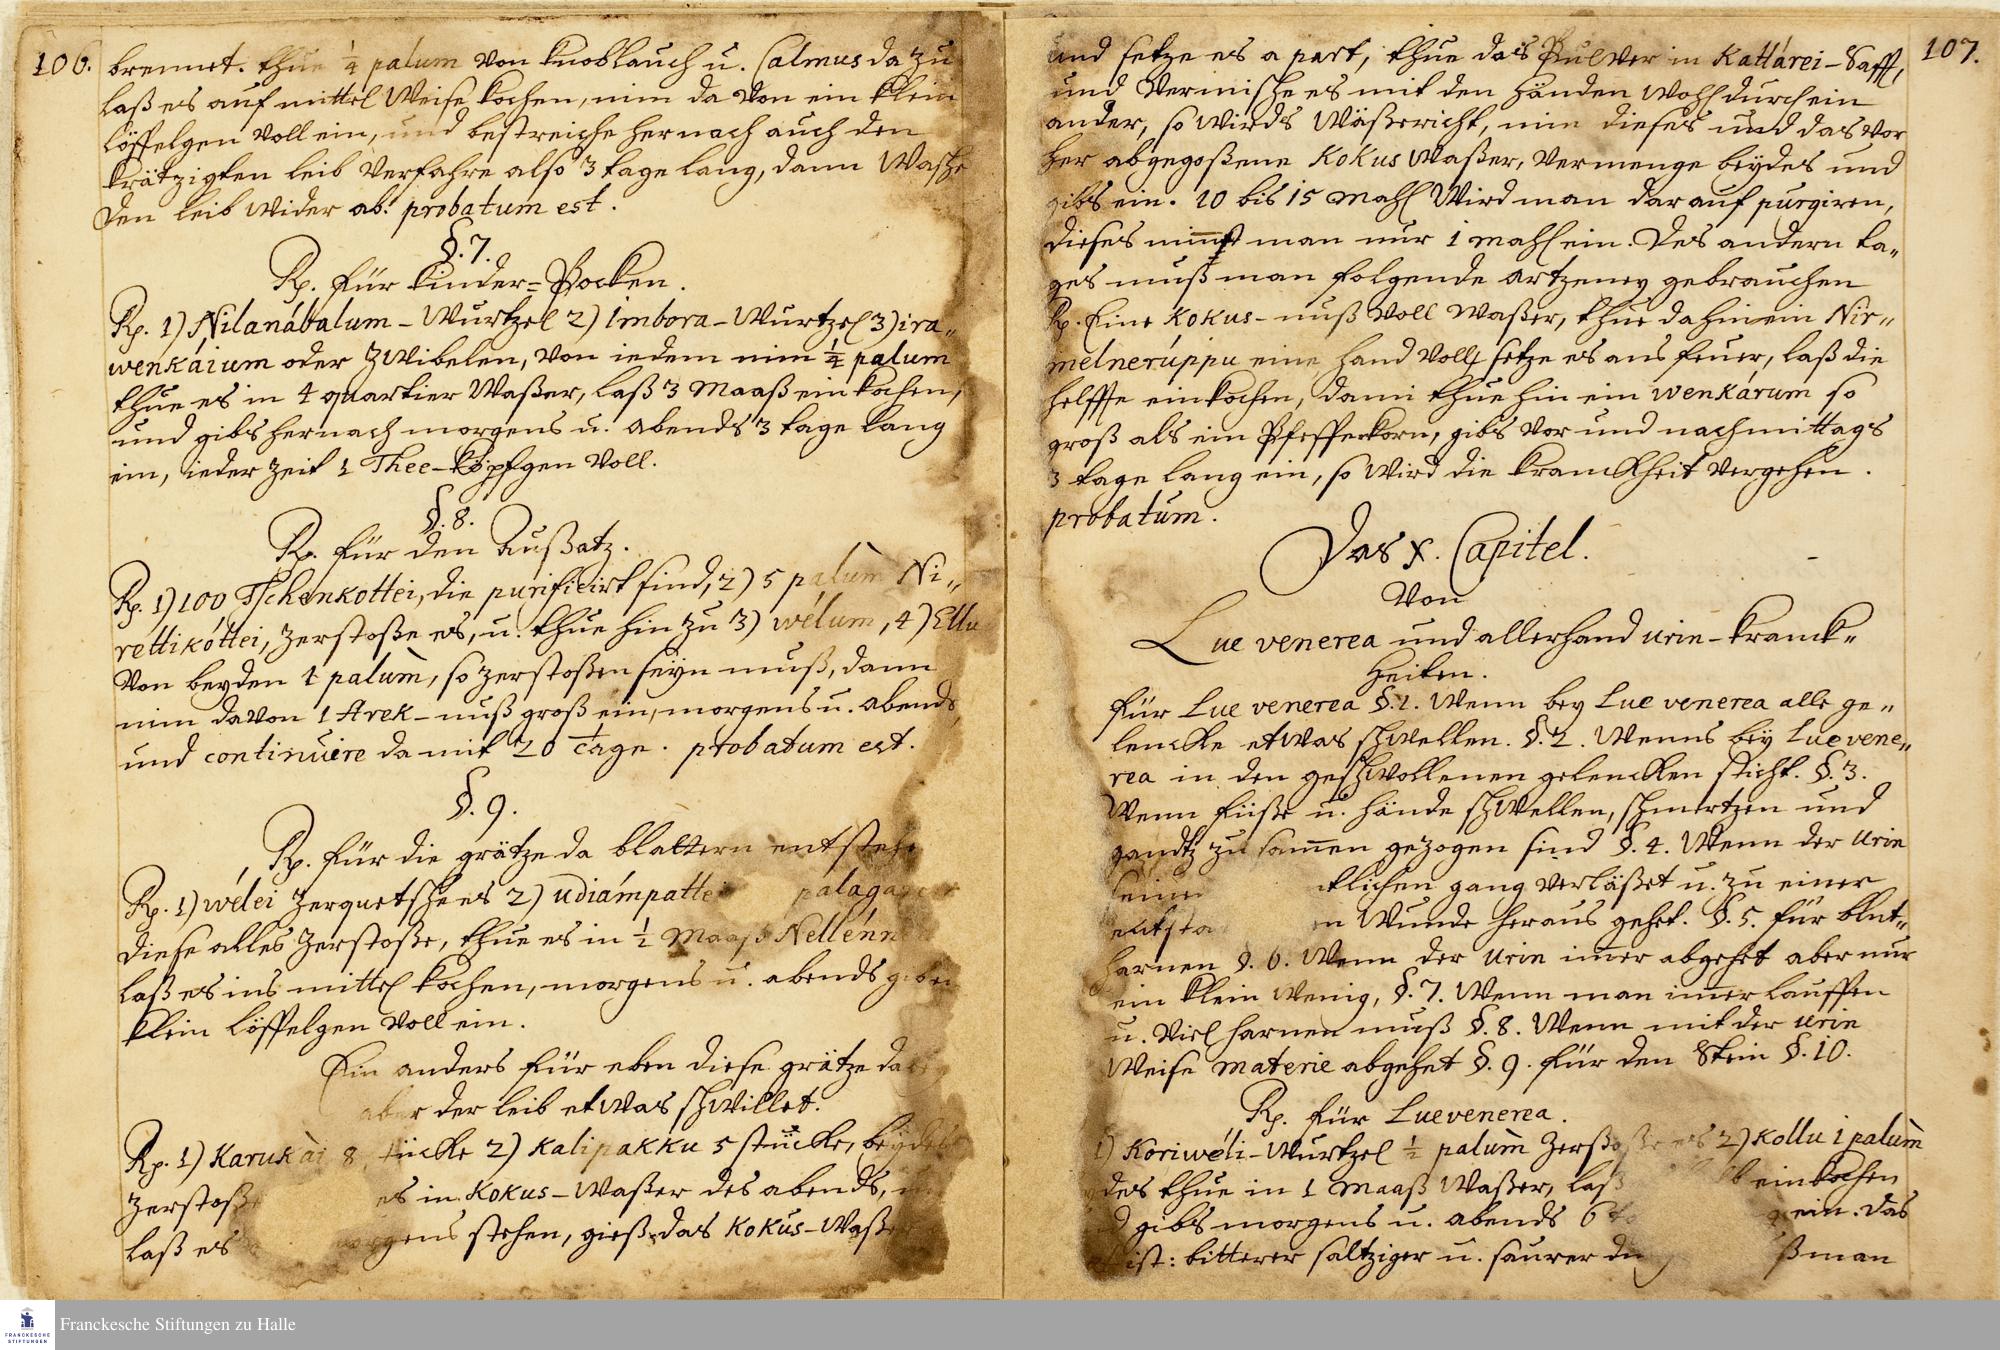 106.
brennet. thue 1/4 palum von Knoblauch u. Calmus dazu
laß es auf mittel Weise kochen, nim da von ein klein
löffelgen voll ein, und bestreiche hernach auch den
krätzigten leib verfahre also 3 tage lang, dann wasche
den leib wider ab. probatum est.
§. 7.
Rp. für Kinder=Pocken.
Rp. 1) Nilanábalum-Wurtzel 2) Imbora-Wurtzel 3) ira„
wenkáium oder Zwibelen, von iedem nim 1/4 palum
thue es in 4 quartier Waßer, laß 3 Maaß ein kochen,
und gibs hernach morgens u. abends 3 tage lang
ein, ieder Zeit 1 Thee-Köpfgen voll.
§. 8.
Rp. für den Außatz.
Rp. 1) 100 Tschenkottei, die purificirt sind, 2) 5 palum̀ Ni„
rettikóttei, zerstoße es, u. thue hin zu 3) wélum, 4) Ellu
von beyden 1 palum̀, so zerstoßen seyn muß, dann
nim davon 1 Arek-nuß groß ein, morgens u. abends
und continuire damit 20 tage. probatum est.
§. 9.
Rp. für die grätze da blattern entstehe
Rp. 1) wélei zerquetsche es 2) udiámpattei
diese alles zerstoße, thue es in 1/2 Maaß Nellénn
laß es ins mittel kochen, morgens u. abends
klein löffelgen voll ein.
Ein anders für eben diese grätze
aber der leib etwas schwillet.
Rp. 1) Karukài 8 stücke 2) Kalipakku 5 stücke, beydes
zerstoße es in Kokus-Waßer des abends,
laß es morgens stehen, gieß das Kokus-Waßer
107.
und setze es a part, thue das Pulver in Kattárei-Safft,
und vermische es mit den händen wohl durch ein
ander, so wirds wäßericht, nim dieses und das vor
her abgegoßene Kokus Waßer, vermenge beydes und
gibs ein. 10 bis 15 mahl wird man darauf purgiren,
dieses nimt man nur 1 mahl ein. Des andern ta„
ges muß man folgende artzeney gebrauchen
Rp. Eine Kokus-nuß voll Waßer, thue dahinein Nir„
melneruppu eine hand voll, setze es ans feuer, laß die
helffte einkochen, dann thue hin ein wenkárum so
groß als ein Pfefferkorn, gibs vor und nachmittags
3 tage lang ein, so wird die kranckheit vergehen.
probatum.
Das X. Capitel.
Von
Lue venerea und allerhand urin-kranck„
heiten.
für Lue venerea §. 1. Wenn bey Lue venerea alle ge„
lencke etwas schwellen. §. 2. Wenns bey Lue vene„
rea in den geschwollenen gelencken sticht. §. 3.
Wenn füße u. hände schwellen, schmertzen und
gandtz zu samen gezogen sind §. 4. Wenn der Urin
seinen gang verläßet u. zu einer
Wunde heraus gehet. §. 5. für blut„
harnen §. 6. Wenn der Urin imer abgehet aber nur
ein klein wenig, §. 7. Wenn man imer lauffen
u. viel harnen muß §. 8. Wenn mit der Urin
weise materie abgehet §. 9. für den Stein §. 10.
Rp. für Lue venerea.
1) Koriwéli-Wurtzel 1/2 palum̀ zerstoße es 2) Kollu 1 palum̀
thue in 1 Maaß Waßer, laß einkochen
gibs morgens u. abends 6 ein. Das
ist: bitterer saltziger u. saurer man
FRANCKESCHE STIFTUNGEN
Franckesche Stiftungen zu Halle